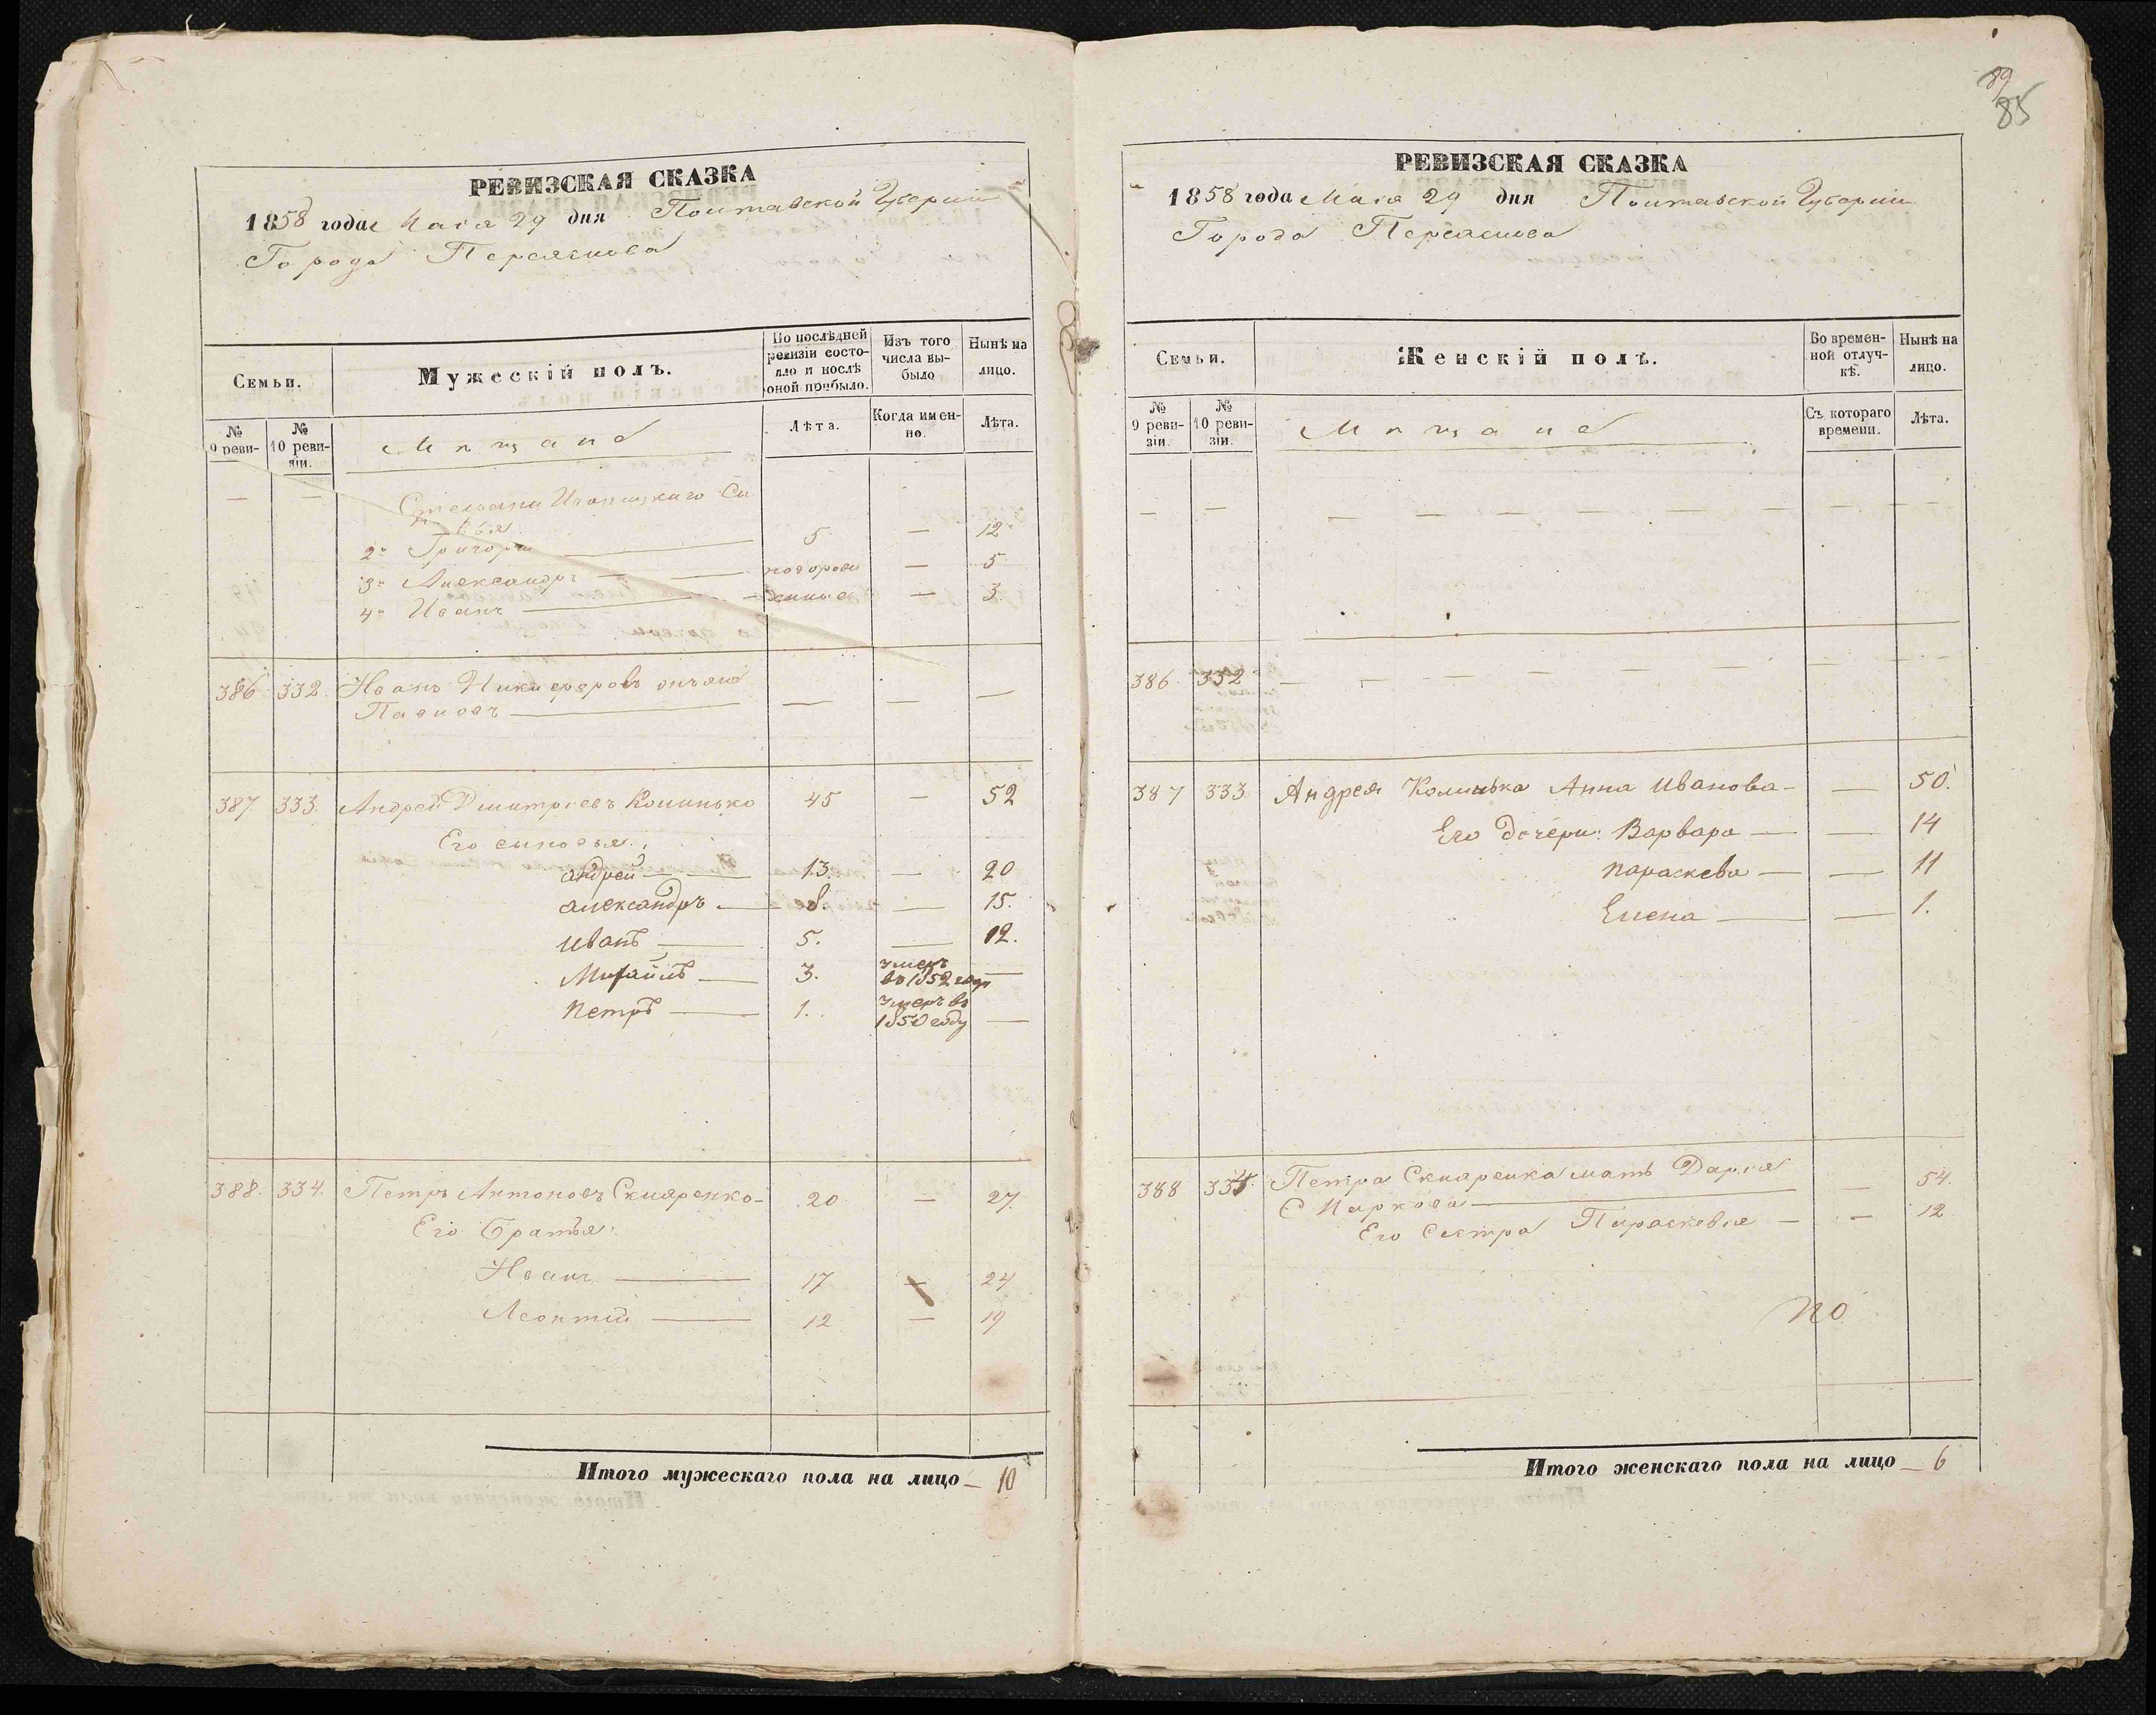 РЕВИЗСКАЯ СКАЗКА
1858 года Мая 29 дня Полтавской Губернии
Города Переяслова
Семьи.
Мужескій полъ.
По послѣдней ревизіи состояло и послѣ оной прибыло.
Изъ того числа выбыло
Нынѣ на лицо.
№ 9 реви-
№ 10 ревизіи.
Мѣщане
Лѣта.
Когда именно.
Лѣта.
— — Степана Сы-
новья
2й Григорій — 5 — 12
3й Александръ — новорож — 5
4й Иванъ — денные — 3
386 332. Иванъ Никифоровъ онъ же
Павловъ — — — —
387 333. Андрей Дмитріевъ Колинько 45 — 52
Его сыновья:
Андрей — 13. — 20
Александръ — 8. — 15.
Иванъ — 5. — 12.
Михаилъ — 3. умеръ въ 1852 году —
Петръ — 1. умеръ въ 1850 году —
388. 334. Петръ Антоновъ Скляренко — 20 — 27.
Его Братья:
Иванъ — 17 — 24
Леонтій — 12 — 19
Итого мужескаго пола на лицо — 10
89
85
РЕВИЗСКАЯ СКАЗКА
1858 года Мая 29 дня Полтавской Губерніи
Города Переяслова
Семьи.
Женскій полъ.
Во временной отлучкѣ.
Нынѣ на лицо.
№ 9 ревизіи.
№ 10 ревизіи.
Мѣщане
Съ котораго времени.
Лѣта.
— — — — — — — — — — —
386. 332 — — — — — — — —
387 333 Андрея Колинька Анна Иванова — — 50.
Его дочери: Варвара — — 14
Параскева — — 11
Елена — — 1.
388 334. Петра Скляренка мать Дарія
— — 54.
Его Сестра Параскевія — — 12
Итого женскаго пола на лицо — 6